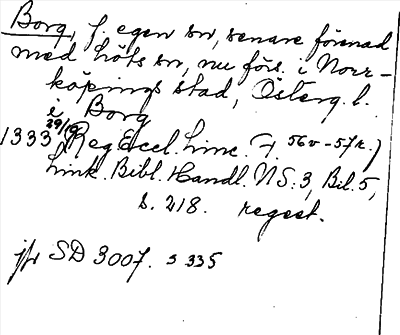 Borg, f. egen sn, senare förenad
med Höts sn, nu förs. i Norr-
köpings stad, Österg. l.
i Borg
1333 29/10 (Reg Eccl. Linc. F. 56v-57r.)
Link. Bibl. Handl. NS. 3, Bil. 5,
s. 218. regest.
jfr SD 3007. s 335